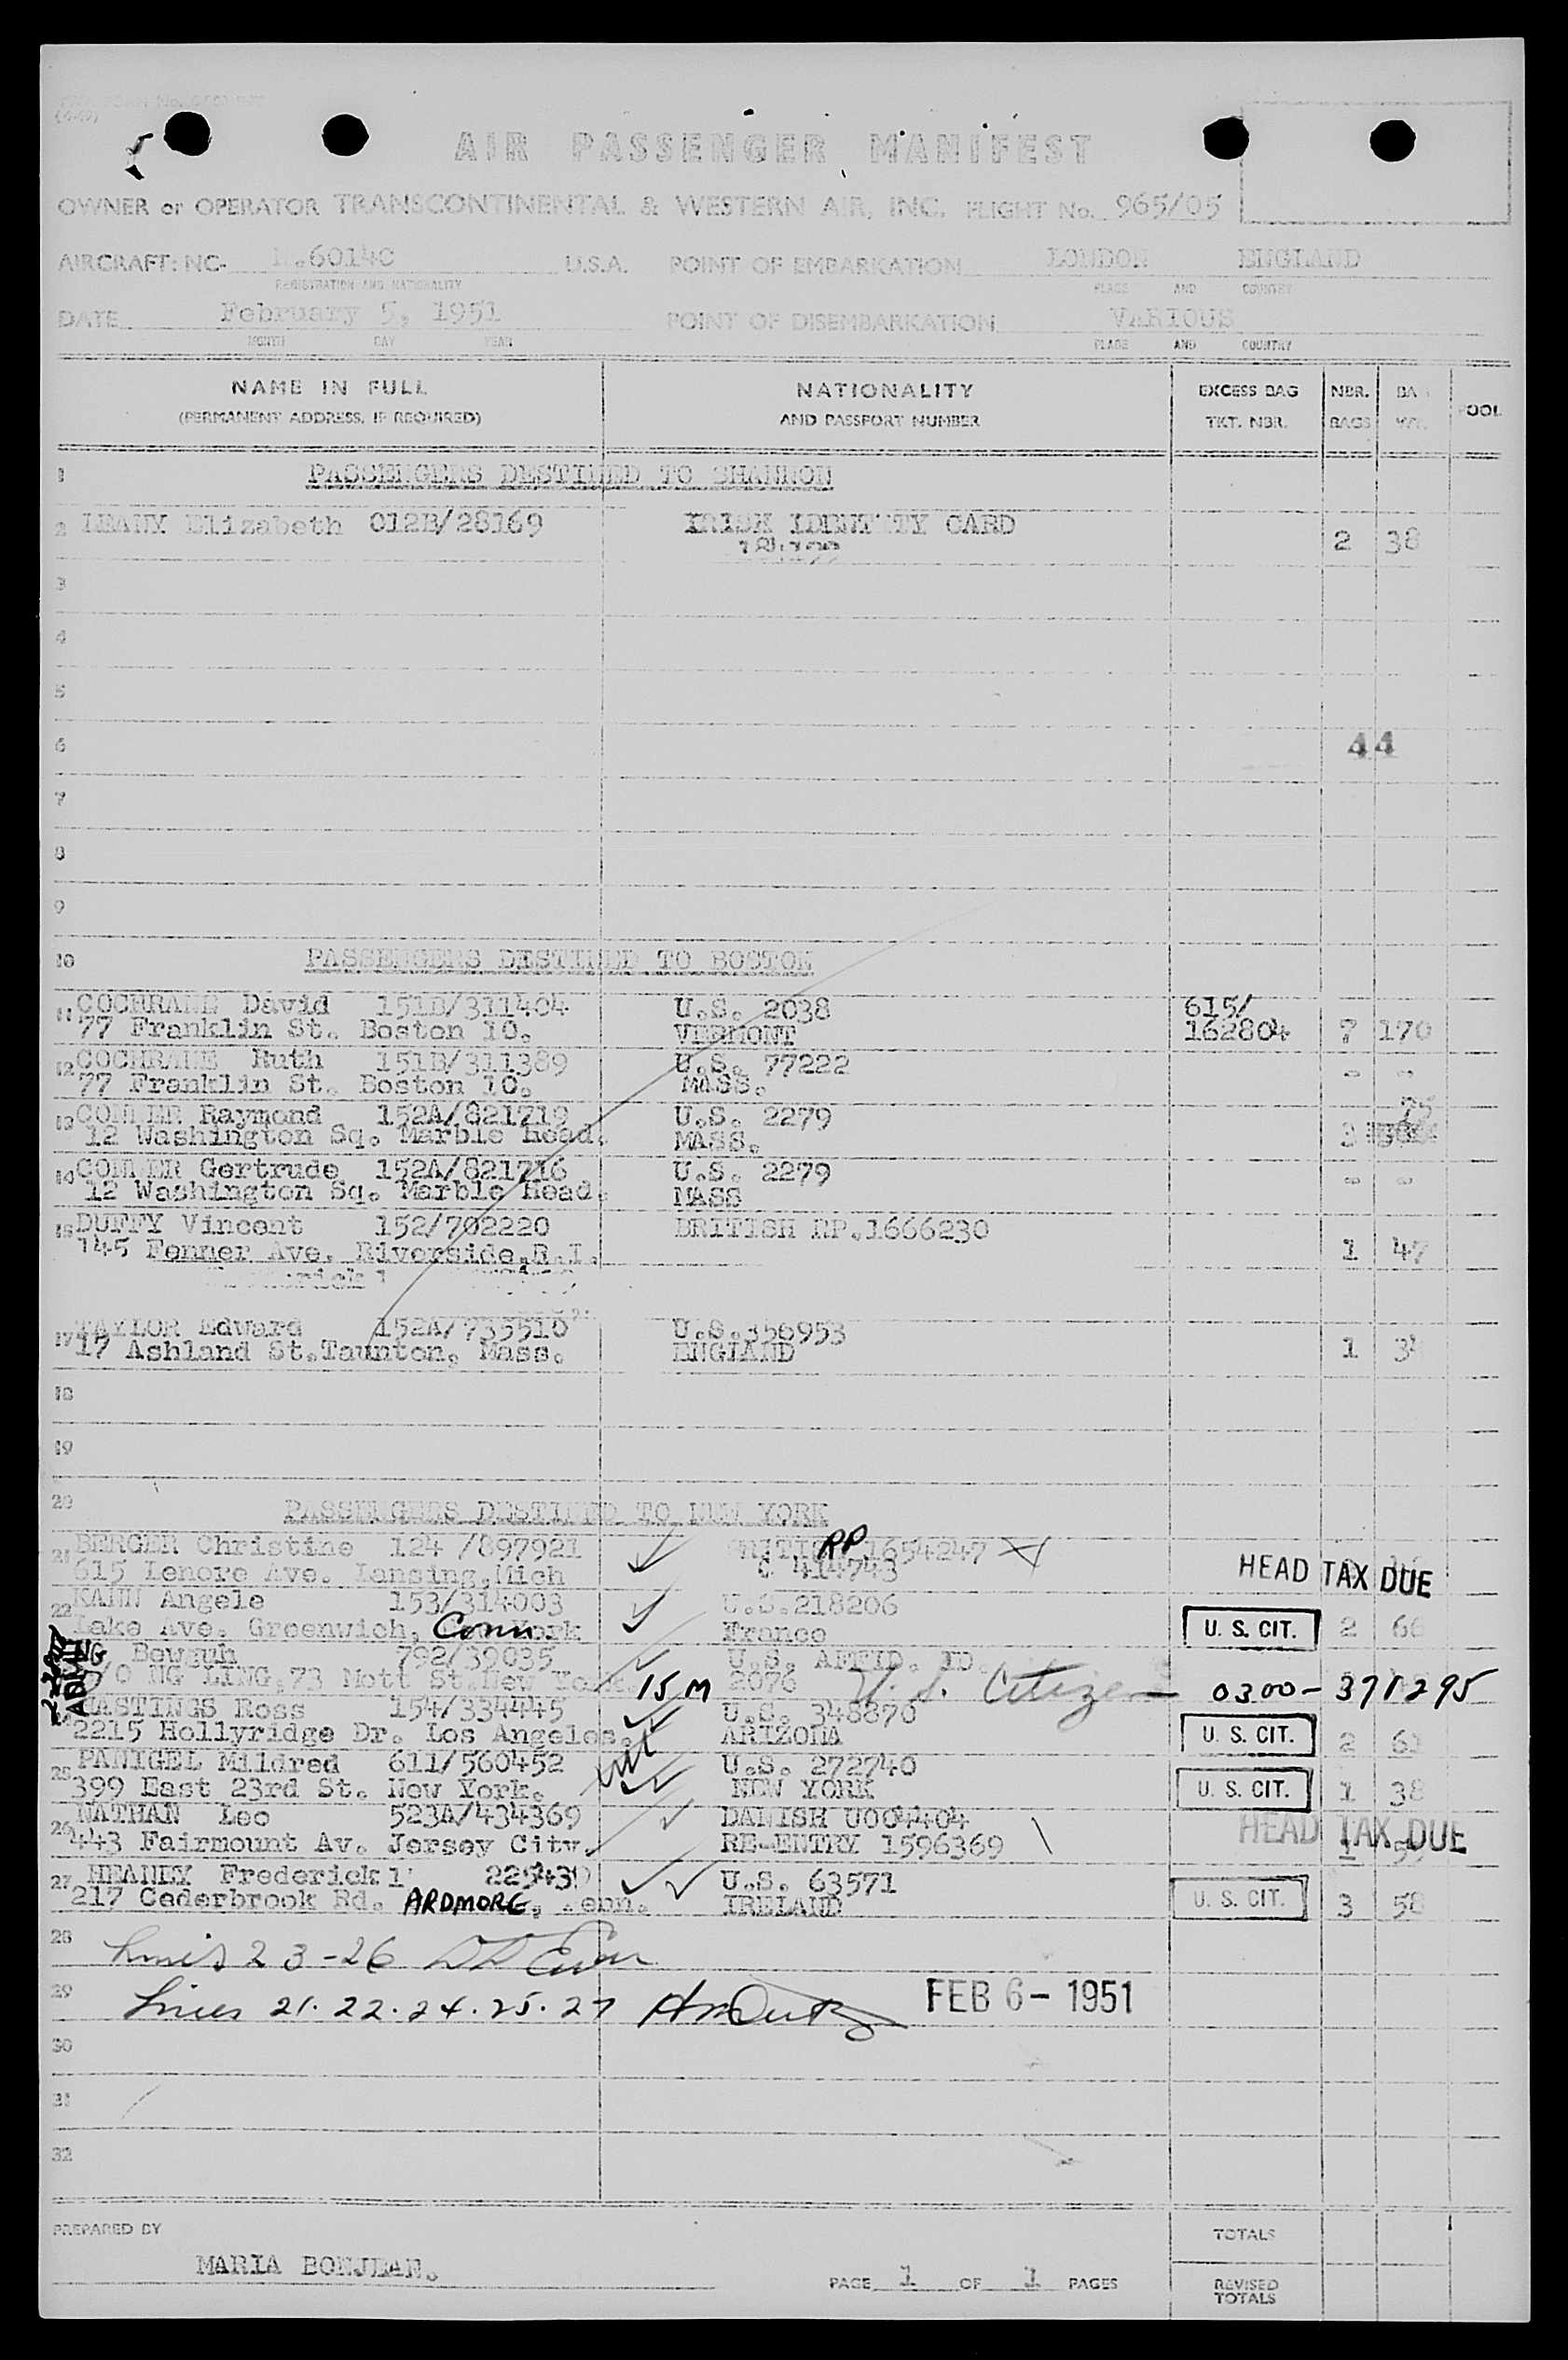 AIR PASSENGER MANIFEST
OWNER or OPERATOR TRANSCONTINENTAL & WESTERN AIR, INC. FLIGHT No. 965/05
AIRCRAFT: NC- 6014C U.S.A. POINT OF EMBARKATION LONDON ENGLAND
REGISTRATION AND NATIONALITY PLACE AND COUNTRY
DATE February 5, 1951 POINT OF DISEMBARKATION VARIOUS
MONTH DAY YEAR PLACE AND COUNTRY
NAME IN FULL NATIONALITY EXCESS BAG NBR.
(PERMANENT ADDRESS, IF REQUIRED) AND PASSPORT NUMBER TKT. NBR. BAGS WT. POOL
1 PASSENGERS DESTINED TO SHANNON
2 Elizabeth 012B/28169 CARD 2 38
3
4
5
6 44
7
8
9
10 PASSENGERS DESTINED TO BOSTON
11 COCHRANE David 151B/311404 U.S. 2038 615/
77 Franklin St. Boston 10. VERMONT 162804 7 170
12 COCHRANE Ruth 151B/311389 U.S. 77222
77 Franklin St. Boston 10. MASS.
13 Raymond 152A/821719 U.S. 2279 75
12 Washington Sq. Marble head. MASS.
14 Gertrude 152A/821716 U.S. 2279
12 Washington Sq. Marble Head. MASS
15 DUFFY Vincent 152/702220 BRITISH RP.1666230
145 Fenner Ave. Riverside,R.I. 1 47
17 TAYLOR Edward 152A/735510 U.S.356953
17 Ashland St.Taunton, Mass. ENGLAND 1 34
18
19
20 PASSENGERS DESTINED TO NEW YORK
21 BERGER Christine 124 /897921 RP 1654247
615 Lenore Ave. Lansing,Mich 414743 HEAD TAX DUE
22 KAHN Angele 153/314003 U.S.218206
Lake Ave. Greenwich, Conn. France U. S. CIT. 2 66
NG 792/39035 U.S. AFFID. ID.
NG LING,73 Mott St.New York. 15 M 2076 U.S. Citizen 0300-371295
ADMIT
HASTINGS Ross 154/334445 U.S. 348870
2215 Hollyridge Dr. Los Angelos. ARIZONA U. S. CIT. 2
25 PANIGEL Mildred 611/560452 U.S. 272740
399 East 23rd St. New York. NEW YORK U. S. CIT. 1 38
26 NATHAN Leo 523A/434369 DANISH U004404
443 Fairmount Av. Jersey City. RE-ENTRY 1596369 HEAD TAX DUE
27 HEANEY Frederick U.S. 63571
217 Cederbrook Rd. ARDMORE, IRELAND U. S. CIT. 3 58
28 23-26
29 Lines 21. 22. 24. 25. 27 FEB 6- 1951
30
31
32
PREPARED BY TOTALS
MARIA BONJEAN.
PAGE 1 OF 1 PAGES REVISED
TOTALS